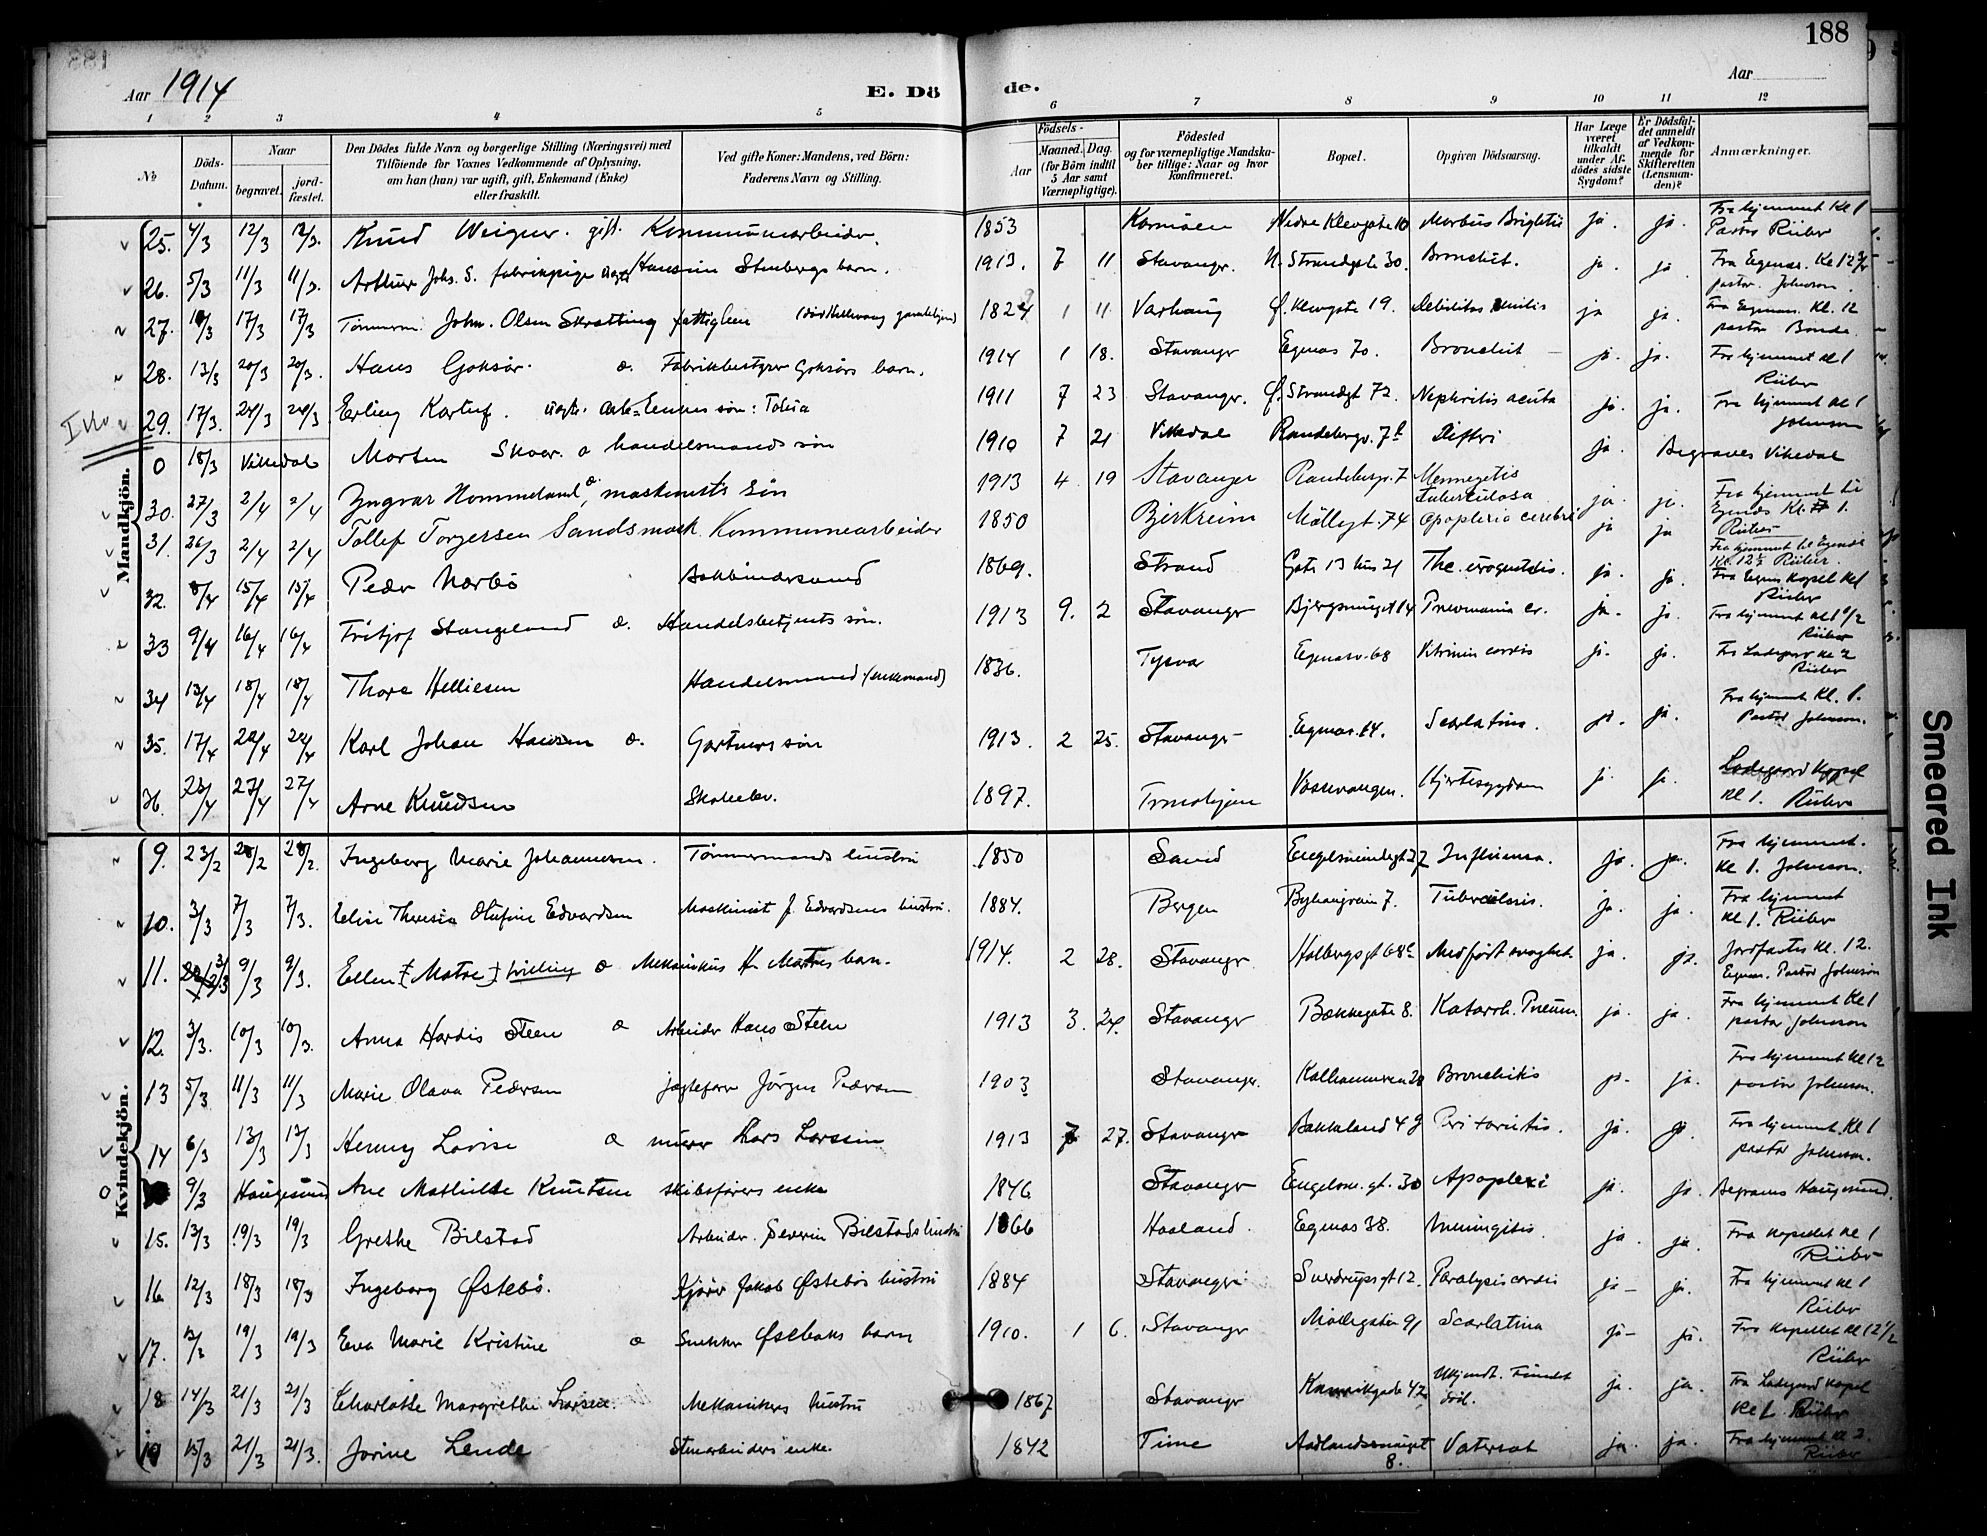 188
Aar 1914
E. Dö de.
Aar
1 2 3 4 5 6 7 8 9 10 11 12
No
Döds-Datum.
Naar
begravet. jord-fæstet.
Den Dödes fulde Navn og borgerlige Stilling (Næringsvei) med
Tilföiende for Voxnes Vedkommende af Oplysning,
om han (hun) var ugift, gift, Enkemand (Enke)
eller fraskilt.
Ved gifte Koner: Mandens, ved Börn:
Faderens Navn og Stilling.
Födsels-
Aar
Maaned. Dag.
(for Börn indtil
5 Aar samt
Værnepligtige).
Födested
og for værnepligtige Mandska-
ber tillige: Naar og hvor
konfirmeret.
Bopæl.
Opgiven Dödsaarsag.
Har Læge
været
tilkaldt
under Af-
dödes sidste
Sygdom?
Er Dödsfal-
det anmeldt
af Vedkom-
mende for
Skifteretten
(Lensman-
den)?
Anmærkninger.
Mandkjön.
25. 4/3 12/3 12/3. Knud gift. Kommunearbeider. 1853 Karmöen Nedre Klevgate 10 Morbus Brightii ja. ja. Fra hjemmet Kl 1 Pastor Riiber
26. 5/3 11/3 11/3. Arthur Johs. S. fabrikpige Stenbergs barn. 1913. 7 11 Stavanger. N. Strandgate 30. Bronchit. ja. ja Fra Egenæs. Kl 12 pastor Johnson.
27. 17/3 17/3 Tömmerm. John. Olsen fattiglem 1824 1 11 Varhaug Ö. Klevgate 19. Debilitas senilis ja ja. Fra Egenæs. Kl. 12 pastor Bonde.
28. 13/3 20/3 20/3. Hans Goksör. Fabrikbestyrer Goksörs barn. 1914 1 18. Stavanger Egenæs 70. Bronchit ja. ja. Fra hjemmet kl 1 Riiber
29. 17/3. 24/3 24/3 Erling 1911 7 23 Stavanger. Ö. Strandgt 72. Nephritis acuta ja. ja. Fra hjemmet kl 1 Johnson
0 18/3 Vikedal Morten handelsmands sön 1910 7 21 Vikedal Randebergv. 7 Difteri ja. Begraves Vikedal
30. 27/3 2/4 2/4 Yngvar Hommeland, maskinists sön 1913 4 19 Stavanger Randebergv. 7 Tuberculosa ja. ja. Fra hjemmet til Egenæs Kl. 1. Riiber
31. 26/3 2/4 2/4 Tollef Torgersen Sandsmark. Kommunearbeider 1850 Bjerkreim Möllegt. 74 apoplexia cerebri ja ja Fra hjemmet til Egenæs Kl. 12½ Riiber.
32. 8/4 15/4 15/4 Peder Nærbö Bokbindersvend 1869. Strand Gate 13 hus 21 ja. ja. Fra Egenæs Kapel kl 1 Riiber
33 9/4 16/4 16/4 Fritjof Stangeland Handelsbetjents sön. 1913 9. 2 Stavanger Pneumonia cr. ja. ja. Fra hjemmet kl 1½ Riiber
34 13/4 18/4 18/4 Thore Helliesen Handelsmand (enkemand) 1836. Tysvær Egenæsv. 68 Vitium cordis ja. ja. Fra Ladegaard kl 2 Riiber
35. 17/4 24/4 24/4 Karl Johan Hansen Gartners sön 1913. 2 25. Stavanger Scarlatina. ja. ja. Fra hjemmet Kl. 1. Pastor Johnson.
36. 23/4 27/4 27/4 Arne Knudsen Skoleelev. 1897. Vossevangen. Hjertesygdom ja. ja. Ladegaard Kapel kl 1. Riiber
Kvindekjön.
9. 23/2 28/2 28/2. Ingeborg Marie Johannesen. Tömmermands hustru 1850 Sand Engelsmindegt 27 Influensa. ja. ja. Fra hjemmet. kl 1. Johnson.
10. 3/3 7/3 7/3. Eline Theresia Olufine Edvardsen Maskinist J. Edvardsens hustru. 1884. Bergen Byhaugveien 7. Tuberculosis. ja. ja. Fra hjemmet kl 1. Riiber
11. 9/3 9/3. Ellen (Matre) tvilling Mekanikus H. Matres barn. 1914. 2 28. Stavanger Holbergsgt 68 Medfödt svaghet. ja. ja. Jordfæstes kl. 12. Egenæs. Pastor Johnson
12. 3/3. 10/3 10/3. Anna Hordis Steen Arbeider Hans Steen 1913 3. 24. Stavanger Bækkegate 8. Katarrh. Pneum. ja. ja. Fra hjemmet Kl 1 pastor Johnson
13 5/3 11/3 11/3 Marie Olava Pedersen jægtefører Jörgen Pedersen 1903 Stavanger. Bronchitis ja. ja. Fra hjemmet kl 12 pastor Johnson.
14 6/3 13/3 13/3 Henny Lovise murer Lars Larssen 1913 7 27. Stavanger Bakkeland 49 ja. ja. Fra hjemmet. Kl 1 pastor Johnson.
0 9/3 Haugesund Ane Mathilde Knutsen skibsförers enke 1846 Stavanger Engelsm. gt. 30 Apoplexi ja. ja. Begraves Haugesund.
15. 13/3 19/3 19/3 Grethe Bilstad Arbeider. Severin Bilstads hustru 1866 Haaland. Egenæs 38. Meningitis. ja. ja. Fra kapellet kl 1 Riiber
16 12/3 18/3 18/3 Ingeborg Østebö. Kjörer Jakob Østebös hustru 1884 Stavanger Sverdrupsgt 12. Paralysis cordis ja ja. Fra hjemmet kl 1 Riiber
17. 19/3 19/3 Eva Marie Kristine Snekker barn 1910. 1 6. Stavanger Möllegaten 91 Scarlatina ja ja. Fra Kapellet Kl 12½ Riiber
18 14/3 21/3 21/3 Charlotte Margrethe Larsen. Mekanikers hustru 1867 Stavanger Kannikgade 42 Ukjendt. Fundet död. ja. ja. Fra Ladegaard kapel kl 1. Riiber
19 15/3 21/3 21/3. Jorine Lende Stenarbeiders enke. 1842 Time 8. Vatersot ja. ja. Fra hjemmet kl 2. Riiber
Smeared Ink